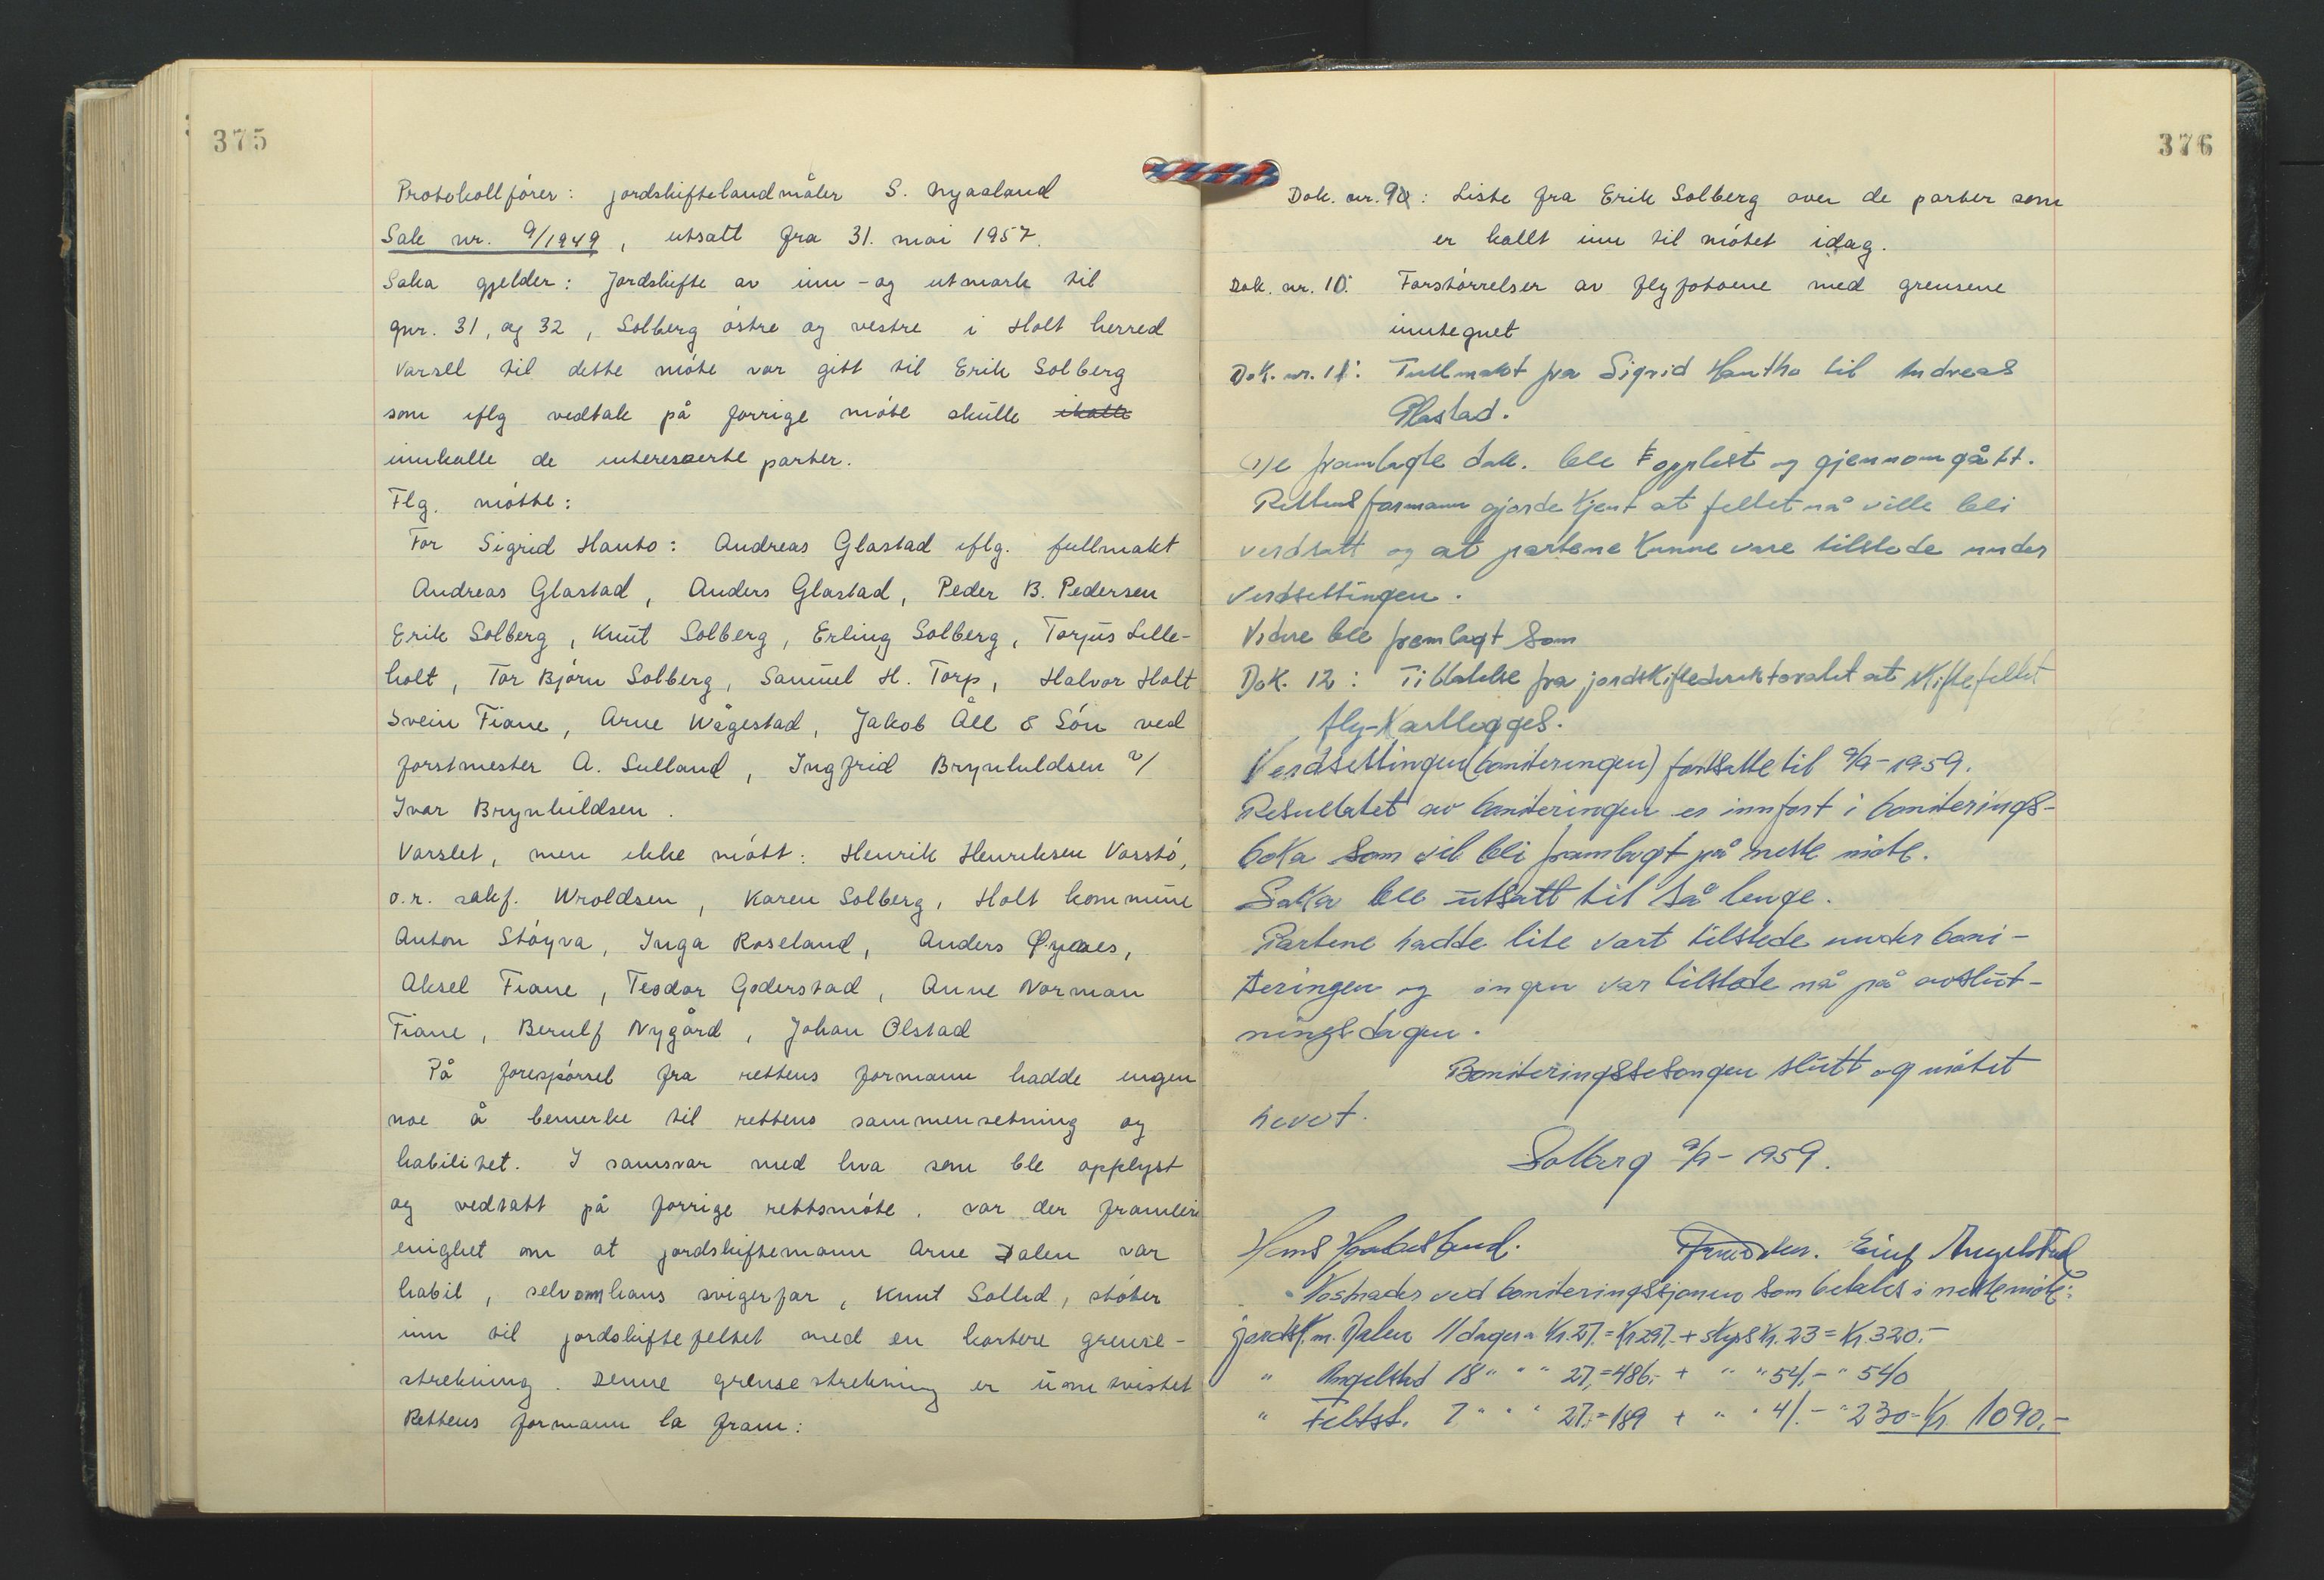 375
Protokollfører: jordskiftelandmåler S. Nyaaland
Sak nr. 9/1949, utsatt fra 31. mai 1957.
Saka gjelder: Jordskifte av inn- og utmark til
gnr. 31, og 32, Solberg østre og vestre i Holt herred
Varsel til dette møte var gitt til Erik Solberg
som iflg vedtak på forrige møte skulle
innkalle de interesserte parter.
Flg. møtte:
For Sigrid Hanto: Andreas Glastad iflg. fullmakt
Andreas Glastad, Anders Glastad, Peder B. Pedersen
Erik Solberg, Knut Solberg, Erling Solberg, Torjus Lille-
holt, Tor Bjørn Solberg, Samuel H. Torp, Halvor Holt
Svein Fiane, Arne Wågestad, Jakob Åll & Søn ved
forstmester A. Sulland, Ingfrid Brynhildsen v/
Ivar Brynhildsen.
Varslet, men ikke møtt: Henrik Henriksen Vasstø,
o.r. sakf. Wroldsen, Karen Solberg, Holt kommune
Anton Støyva, Inga Roseland, Anders Øynes,
Aksel Fiane, Teodor Goderstad, Anne Norman
Fiane, Berulf Nygård, Johan Olstad
På forespørsel fra rettens formann hadde ingen
noe å bemerke til rettens sammensetning og
habilitet. I samsvar med hva som ble opplyst
og vedtatt på forrige rettsmøte, var der framleis
enighet om at jordskiftemann Arne Dalen var
habil, selv om hans svigerfar, Knut Sollid, støter
inn til jordskiftefeltet med en kortere grense-
strekning. Denne grensestrekning er uomtvistet
Rettens formann la fram:
376
Dok. nr. 9: Liste fra Erik Solberg over de parter som
er kallt inn til møtet idag.
Dok. nr. 10: Forstørrelser av flyfotoene med grensene
inntegnet
Dok. nr. 11: Fullmakt fra Sigrid Hantho til Andreas
Glastad.
De framlagte dok. ble opplest og gjennomgått.
Rettens formann gjorde kjent at feltet nå ville bli
verdsatt og at partene kunne være tilstede under
verdsettingen.
Videre ble fremlagt som
Dok. 12: Tillatelse fra jordskiftedirektoratet at skiftefeltet
fly-kartlegges.
Verdsettingen (boniteringen) fortsatte til 9/9-1959.
Resultatet av boniteringen er innført i boniterings-
boka som vil bli framlagt på neste møte.
Saka ble utsatt til så lenge.
Partene hadde lite vært tilstede under boni-
teringen og ingen var tilstede nå på avslut-
ningsdagen.
Boniteringssesongen slutt og møtet
hevet.
Solberg 9/9-1959.
Einf Angelstad
Kostnader ved boniteringssjonen som betales i neste møte:
jordsk.m. Dalen 11 dager a Kr. 27.= Kr 297.- + skyss Kr. 23 = Kr. 320.-
" Angelstad 18 " " " 27,- = 486.- + " " 54.- " 540
" Feltst. 7 " " " 27.- = 189 + " " 41.- " 230 = Kr. 1090.-